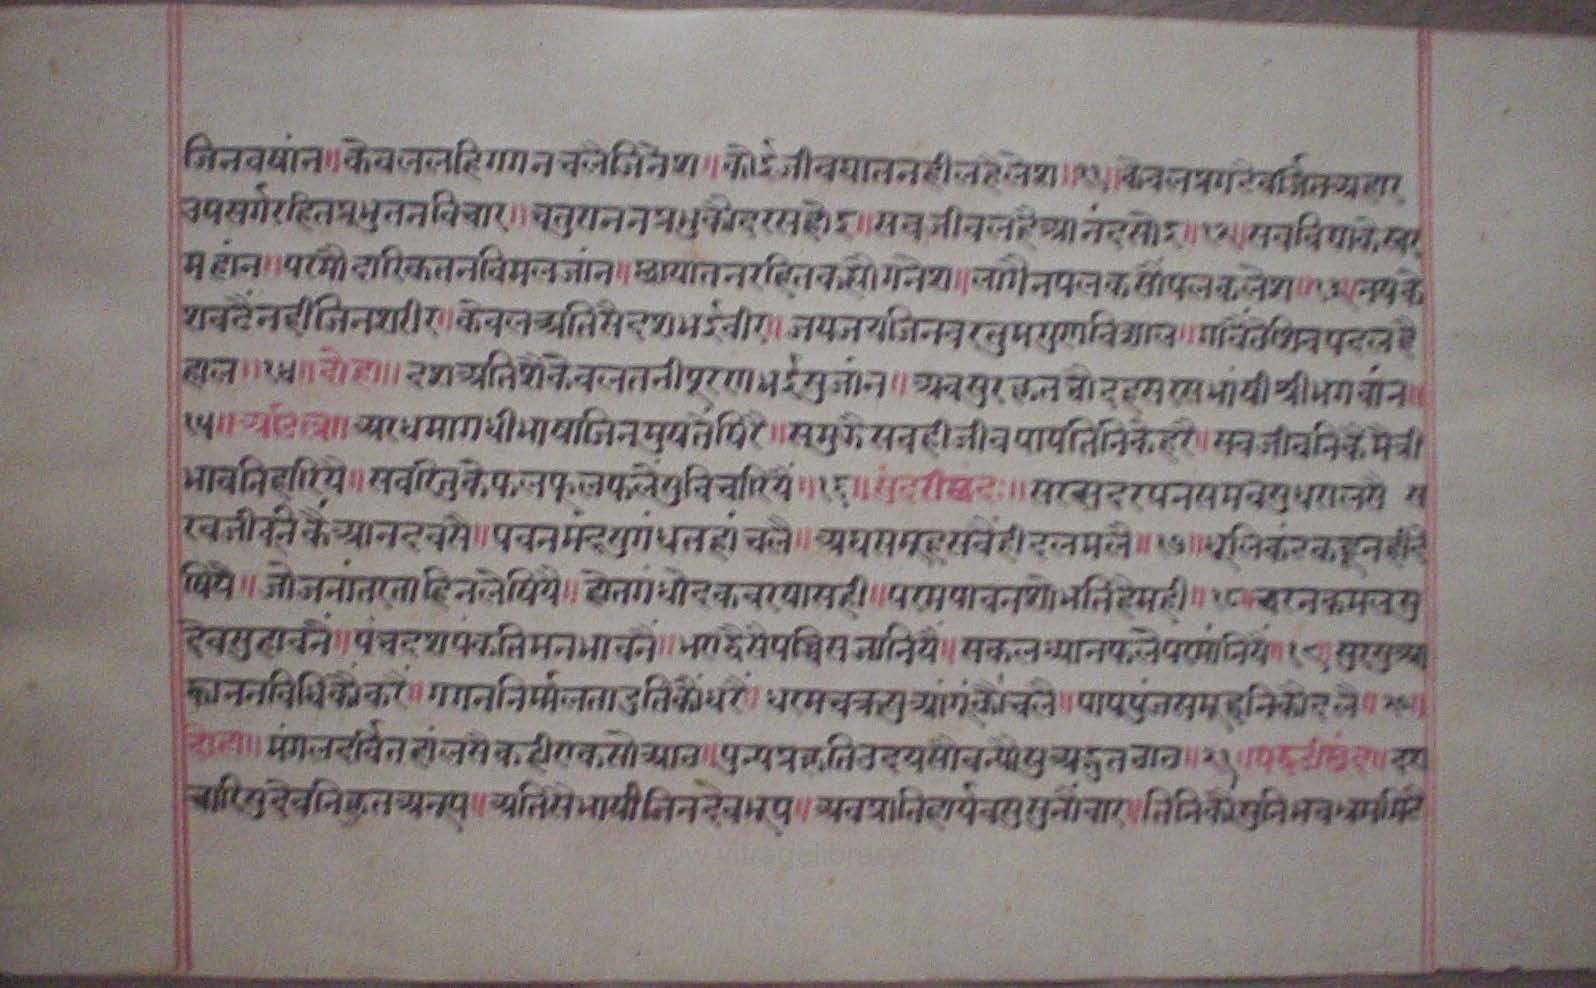 जिनवषांन॥ केवललहिगगनचलैजिनेश॥ कोईजीवघातनहीलहैलेश॥११॥ केवलप्रगटैवर्जितअहार
उपसर्गरहितप्रभुतनविचार॥ चतुराननप्रभुकोदरसहोइ॥ सबजीवलहैआनंदसोइ॥१२॥ सबविद्याकेस्वर
महांन॥ परमौदारिकतनविमलजांन॥ छायातनरहितकह्योगनेश॥ लागैनपलकसौंपलकलेश॥१३॥ नषके
शवढैंनहीजिनशरीर॥ केवलअतिसैदशभईवीर॥ जयजयजिनवरतुमगुणविशाल॥ गावैंतेशिवपदलहै
हाल॥१४॥ दोहा॥ दशअतिशैकेवलतनीपूरणभईसुजांन॥ अवसुरकृतचौदहसरसभांषीश्रीभगवांन॥
१५॥ अडिल्ल॥ अरधमागधीभाषाजिनमुषतैंषिरै॥ समुझैसवहीजीवपापतिनिकेहरै॥ सवजीवनिकैमैत्री
भावनिहारियै॥ सर्वरितुकेफलफूलफलेसुविचारियैं॥१६॥ सुंदरीछंदः॥ सरससदरपनसमवसुधालसै स
रवजीवनिकैंआनदवसै॥ पवनमंदसुगंधतहांचलै॥ अघसमूहसवैंहीदलमलै॥१७॥ धूलिकंटककहूनहीदे
षियै॥ जोजनांतरताहिनलेषियै॥ होतगंधोदकवरषासही॥ परमपावनशोभतिहैमही॥१८॥ चरनकमलसु
देवसुहावनैं॥ पंचदशपंकतिमनभावनैं॥ भएद्वैसैपच्चिसजानियैं॥ सकलध्यानफलेपरमांनियैं॥१९॥ सुरसुआ
काननविधिकौंकरैं॥ गगननिर्मालताद्दुतिकौंधरैं॥ धरमचक्रसुआगंकौंचलै॥ पापपुंजसमूहनिकौदलै॥२०॥
दोहा॥ मंगलदर्वितहांलसैकहीएकसोआठ॥ पुन्यप्रकृतिउदयसौवन्यौसुअद्भुतठाठ॥२१॥ पद्धरीछंद॥ दश
चारिसुदेवनिकृतअनूप॥ अतिसैभाषीजिनदेवभूप॥ अवप्रातिहार्यवसुसुनौंचार॥ तिनिकौंसुनिभवभ्रममिटै